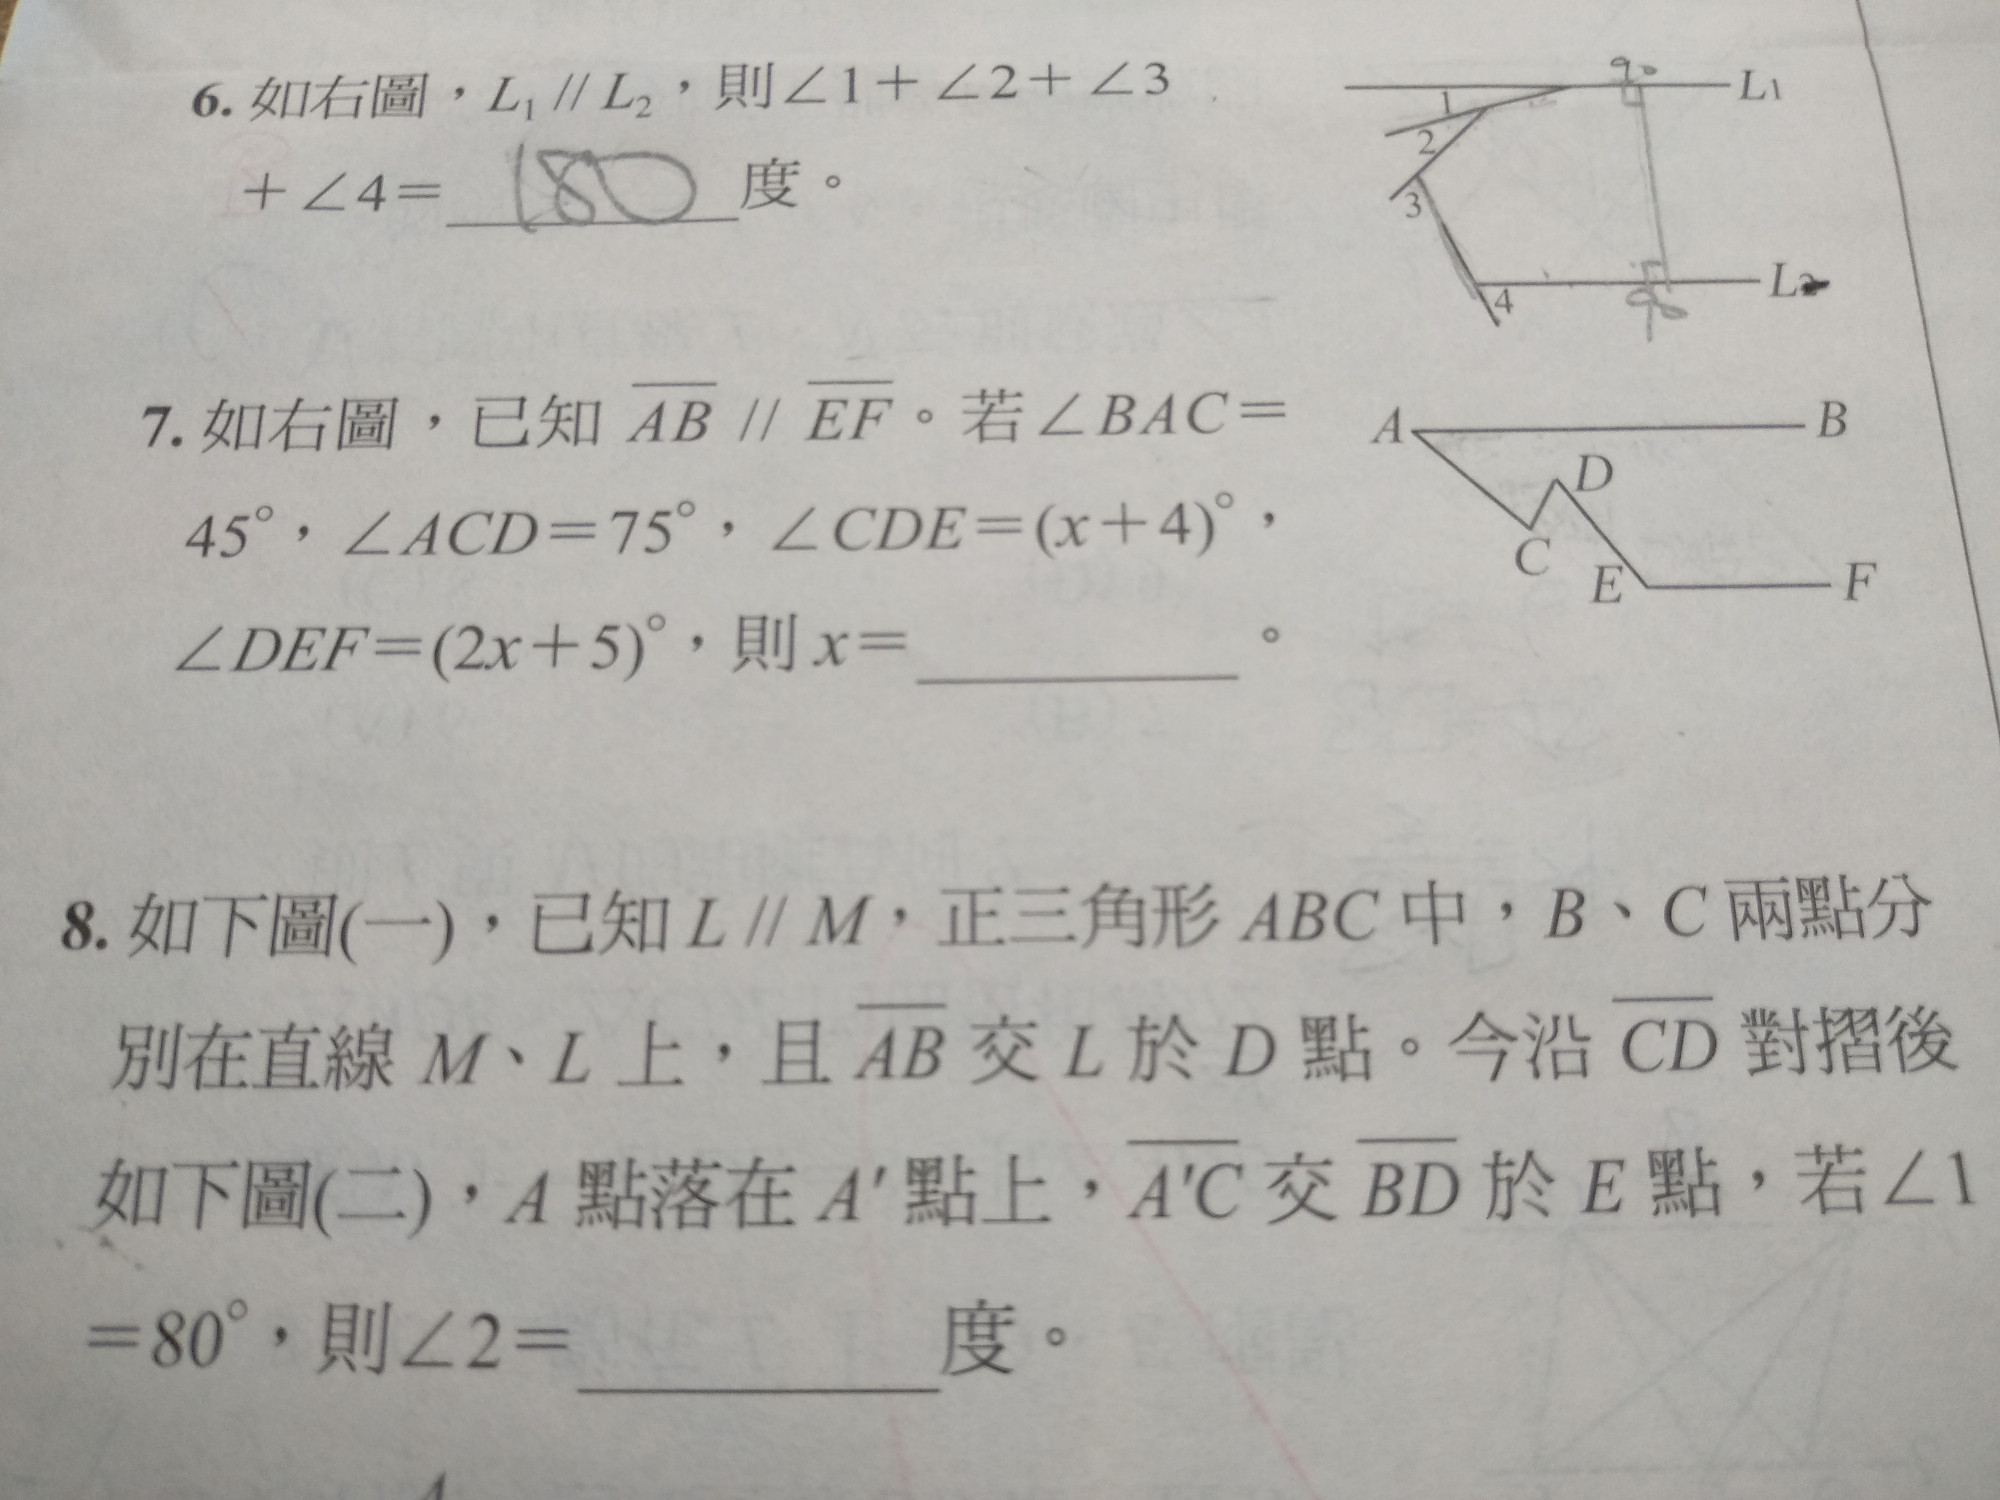 6. 如右圖，L₁ // L₂，則∠1＋∠2＋∠3
＋∠4＝ 180 度。
90
L1
1
2
3
4
L2
90
7. 如右圖，已知 AB // EF。若∠BAC＝
45°，∠ACD＝75°，∠CDE＝(x＋4)°，
∠DEF＝(2x＋5)°，則 x＝________。
A
B
D
C
E
F
8. 如下圖(一)，已知 L // M，正三角形 ABC 中，B、C 兩點分
別在直線 M、L 上，且 AB 交 L 於 D 點。今沿 CD 對摺後
如下圖(二)，A 點落在 A′ 點上，A′C 交 BD 於 E 點，若∠1
＝80°，則∠2＝________度。
A